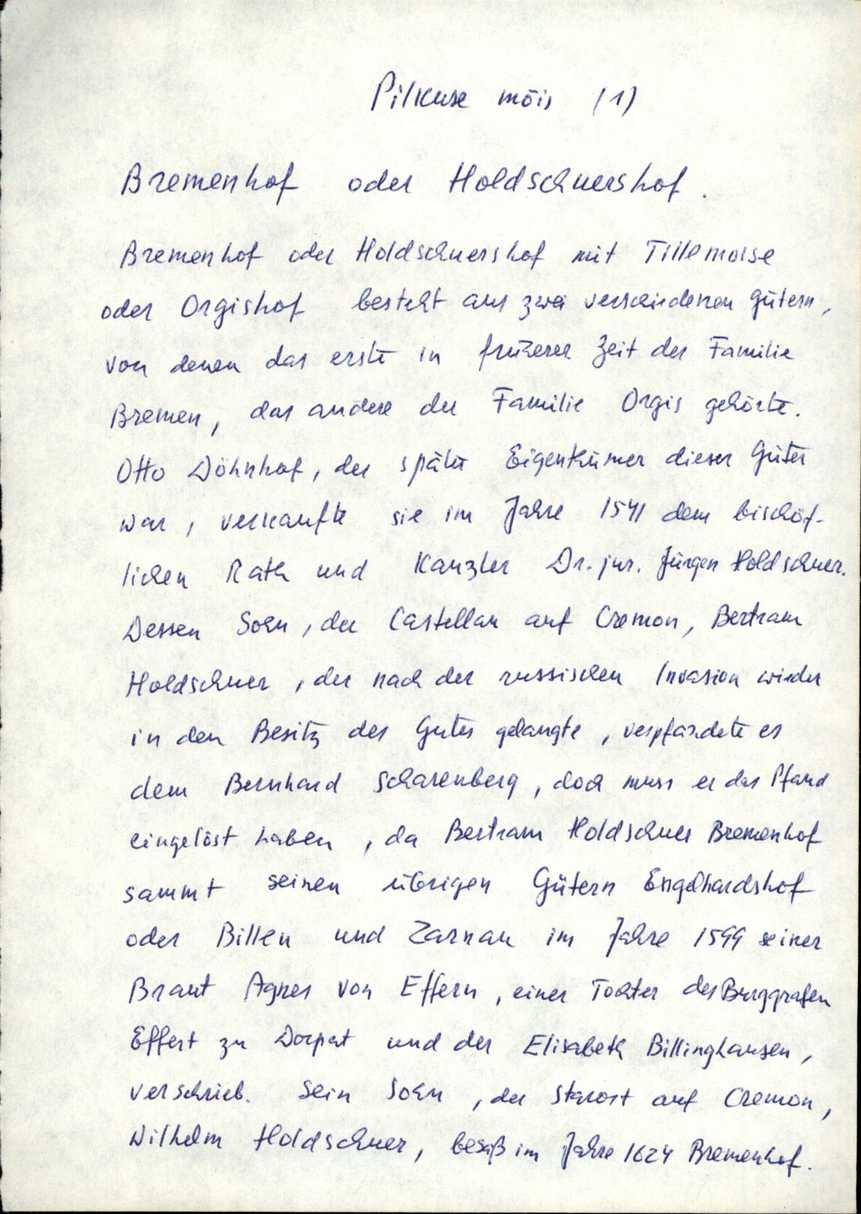 Pilkuse mõis (1)
Bremenhof oder Holdschuershof.
Bremenhof oder Holdschuershof mit Tillemoise
oder Orgishof besteht aus zwei verschiedenen Gütern,
von denen das erste in früherer Zeit der Familie
Bremen, das andere der Familie Orgis gehörte.
Otto Döhnhof, der später Eigenthümer dieser Güter
war, verkaufte sie im Jahre 1541 dem bischöf-
lichen Rath und Kanzler Dr. jur. Jürgen Holdschuer.
Dessen Sohn, der Castellan auf Cremon, Bertram
Holdschuer, der nach der russischen Invasion wieder
in den Besitz des Gutes gelangte, verpfändete es
dem Bernhard Scharenberg, doch muss er das Pfand
eingelöst haben, da Bertram Holdschuer Bremenhof
sammt seinen übrigen Gütern Engelhardshof
oder Billen und Zarnau im Jahre 1599 seiner
Braut Agnes von Effern, einer Tochter des Burggrafen
Effert zu Dorpat und der Elisabeth Billinghausen,
verschrieb. Sein Sohn, der Starost auf Cremon,
Wilhelm Holdschuer, besaß im Jahre 1624 Bremenhof.